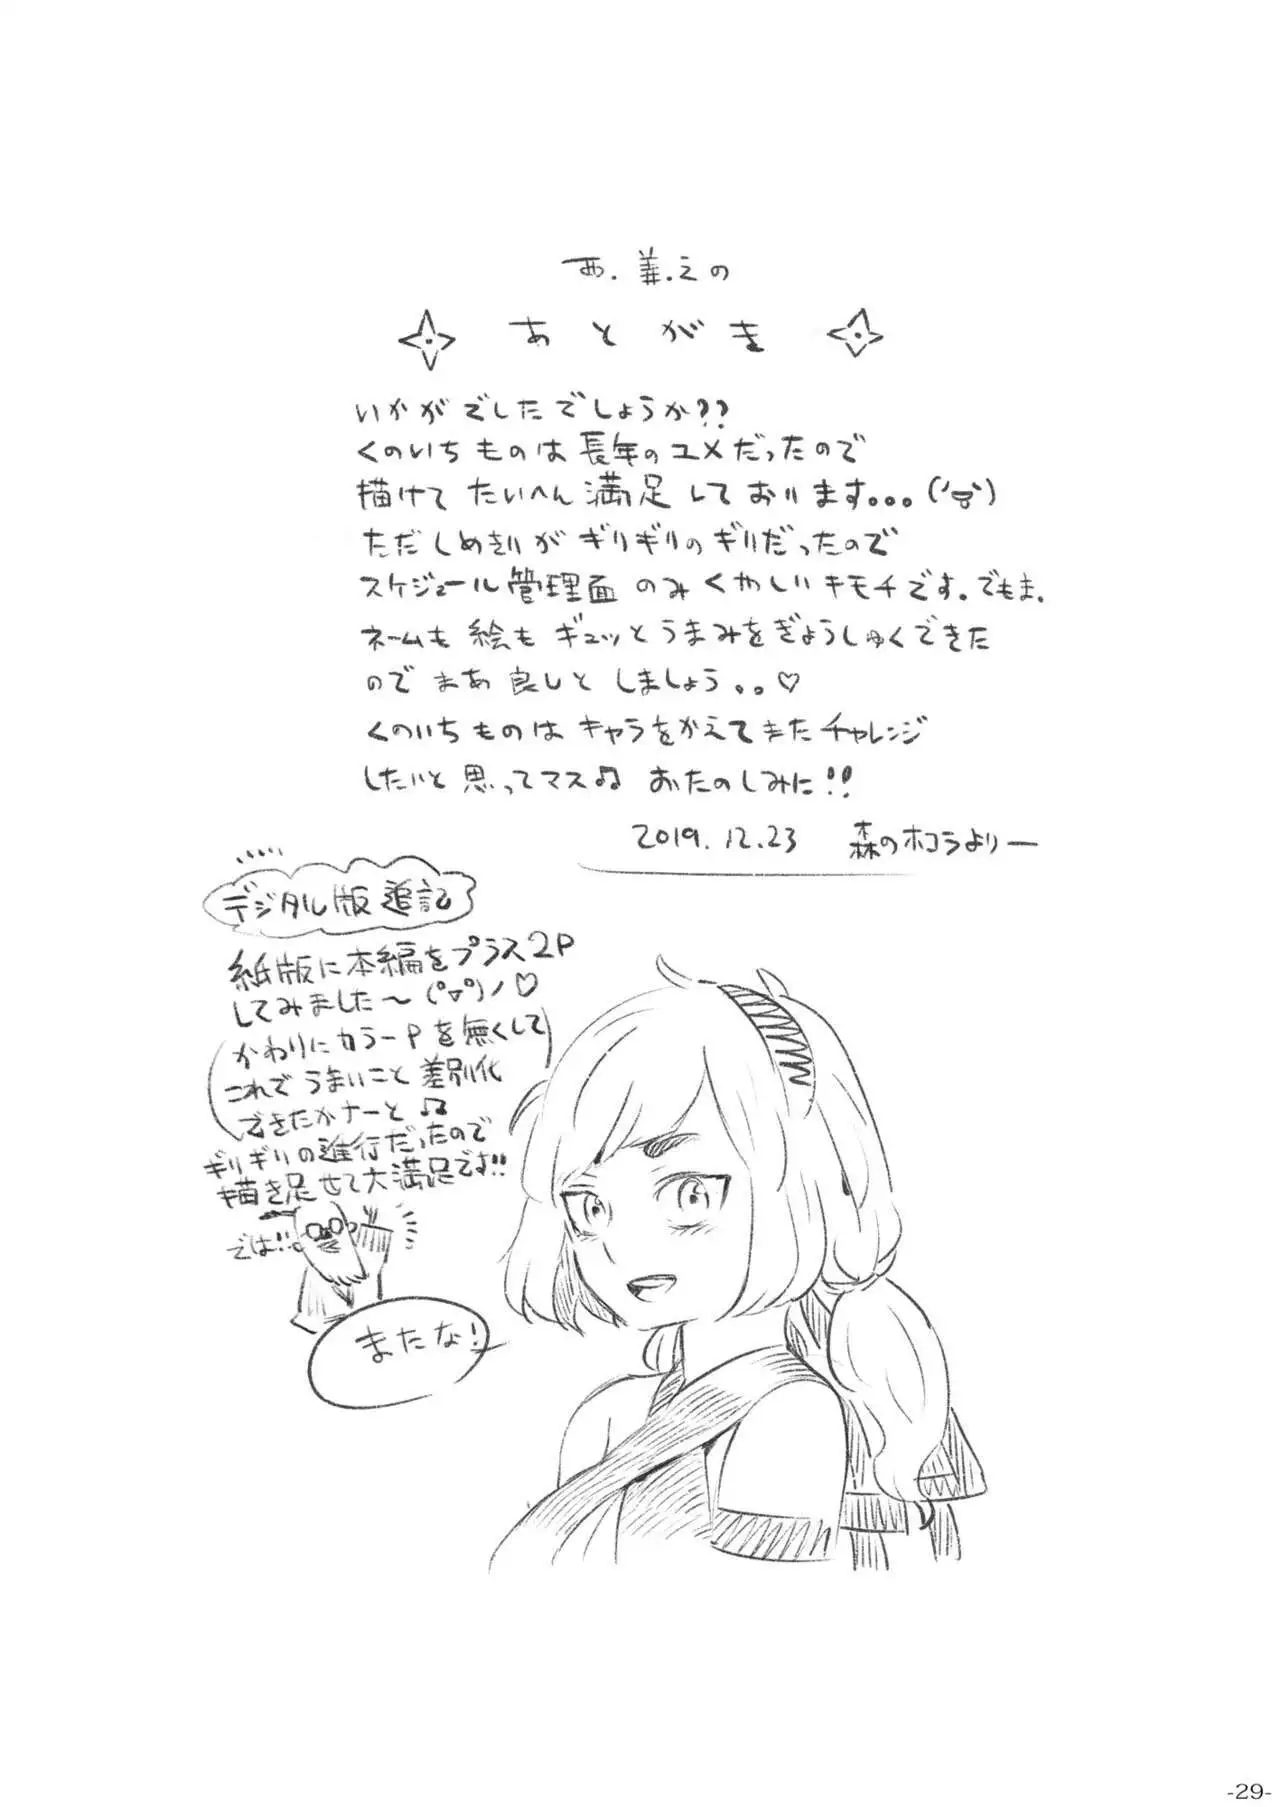 西.義.之の
あとがき
いかがでしたでしょうか??
くのいちものは長年のユメだったので
描けてたいへん満足しております。。。
ただしめきりがギリギリのギリだったので
スケジュール管理面のみくやしいキモチです。でもま.
ネームも絵もギュッとうまみをぎょうしゅくできた
のでまあ良しとしましょう。。♡
くのいちものはキャラをかえてまたチャレンジ
したいと思ってマス♫ おたのしみに!!
2019.12.23 森のホコラよりー
デジタル版追記
紙版に本編をプラス2P
してみました〜(°▽°)ノ♡
(かわりにカラーPを無くして
これでうまいこと差別化
できたかナーと♫)
ギリギリの進行だったので
描き足せて大満足です!!
では!!
またな!
-29-